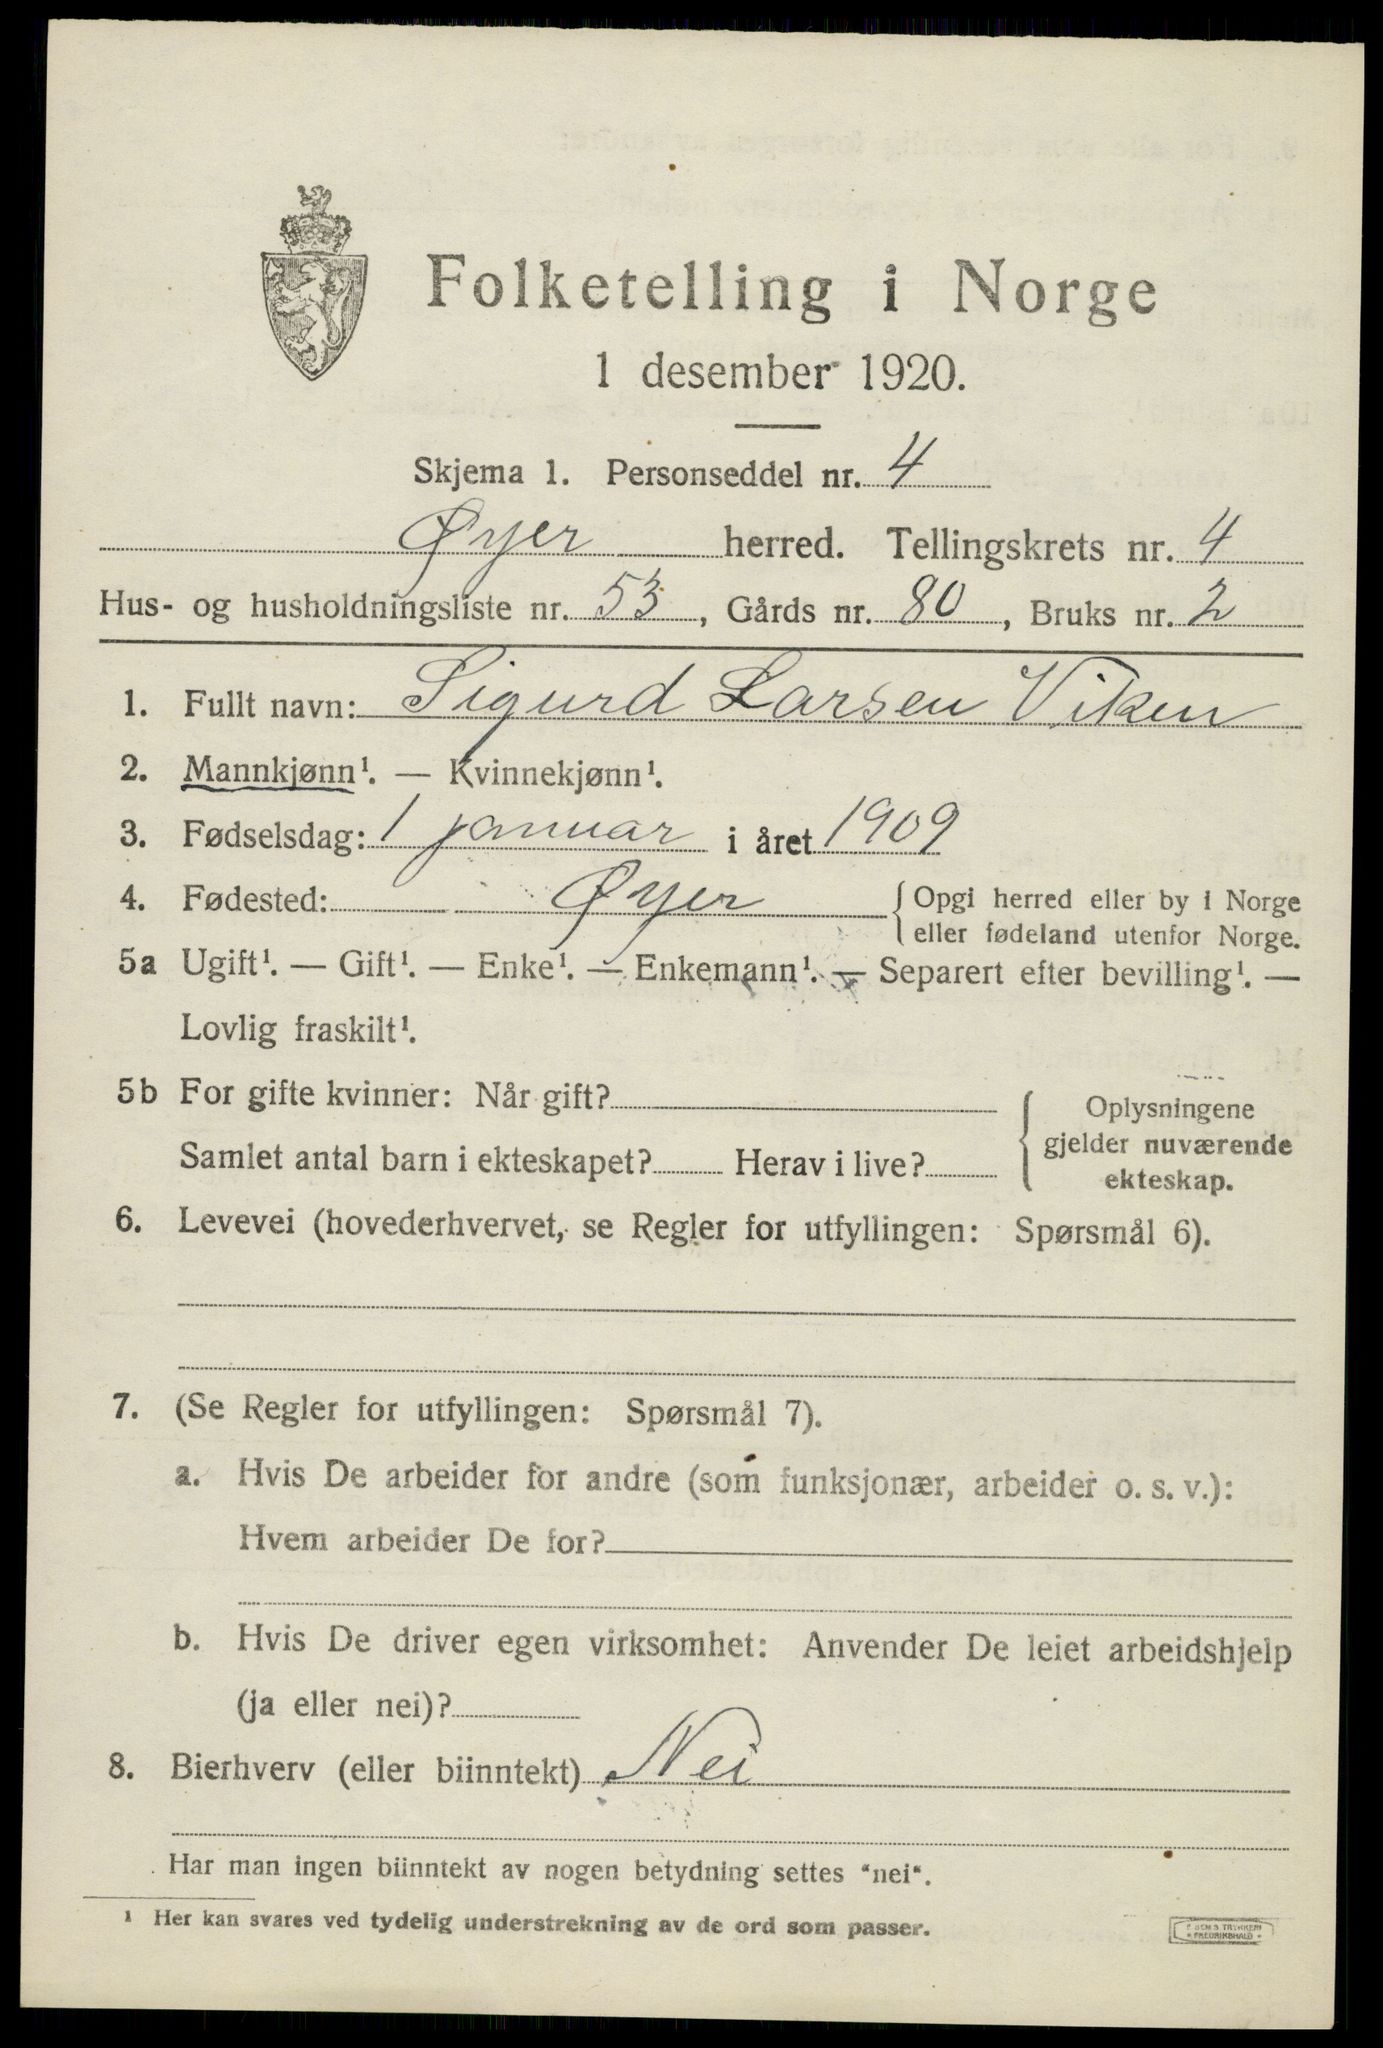 Folketelling i Norge
1 desember 1920.
Skjema 1. Personseddel nr. 4
Øyer herred. Tellingskrets nr. 4
Hus- og husholdningsliste nr. 53, Gårds nr. 80, Bruks nr. 2
1. Fullt navn: Sigurd Larsen Viken
2. Mannkjønn¹. — Kvinnekjønn¹.
3. Fødselsdag: 1 januar i året 1909
4. Fødested: Øyer { Opgi herred eller by i Norge
eller fødeland utenfor Norge.
5a Ugift¹. — Gift¹. — Enke¹. — Enkemann¹. — Separert efter bevilling¹. —
Lovlig fraskilt¹.
5b For gifte kvinner: Når gift?
Samlet antal barn i ekteskapet? Herav i live?
{ Oplysningene
gjelder nuværende
ekteskap.
6. Levevei (hovederhvervet, se Regler for utfyllingen: Spørsmål 6).
7. (Se Regler for utfyllingen: Spørsmål 7).
a. Hvis De arbeider for andre (som funksjonær, arbeider o. s. v.):
Hvem arbeider De for?
b. Hvis De driver egen virksomhet: Anvender De leiet arbeidshjelp
(ja eller nei)?
8. Bierhverv (eller biinntekt) Nei
Har man ingen biinntekt av nogen betydning settes "nei".
¹ Her kan svares ved tydelig understrekning av de ord som passer.
TRYKKERI
FREDRIKSHALD